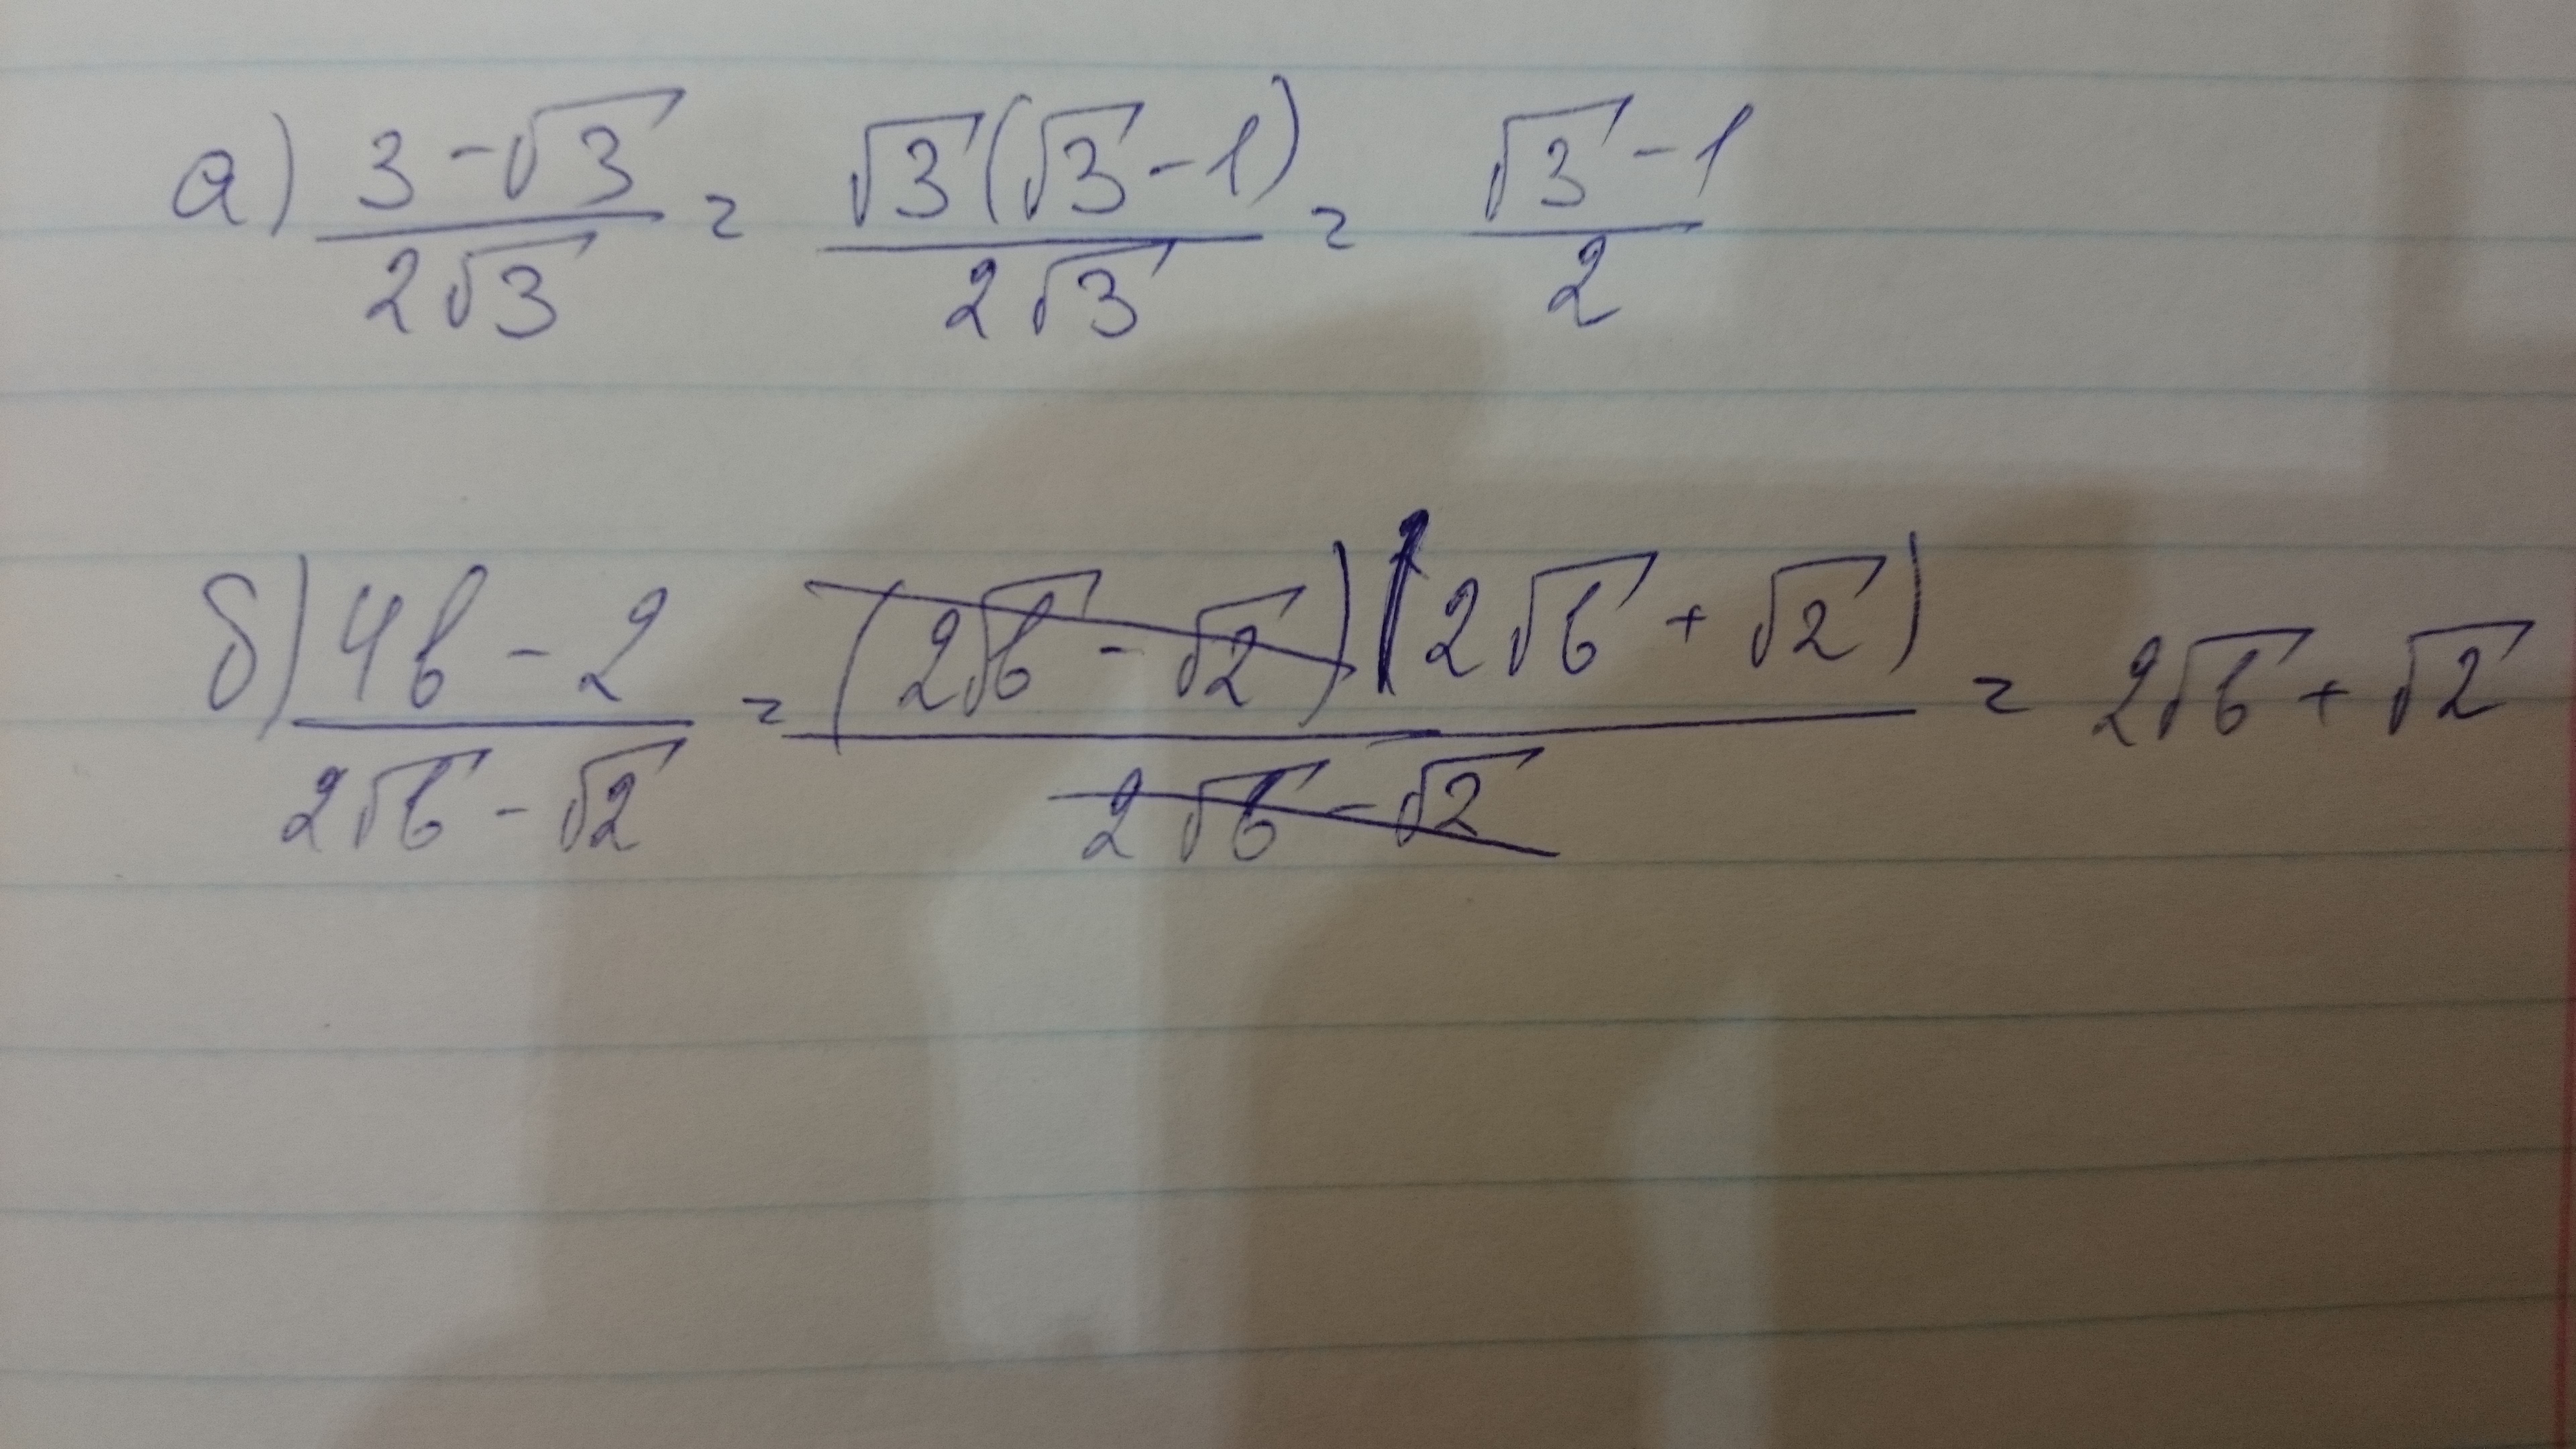 а) (3 - √3)/(2√3) = (√3(√3 - 1))/(2√3) = (√3 - 1)/2
б) (4b - 2)/(2√b - √2) = ((2√b - √2)(2√b + √2))/(2√b - √2) = 2√b + √2